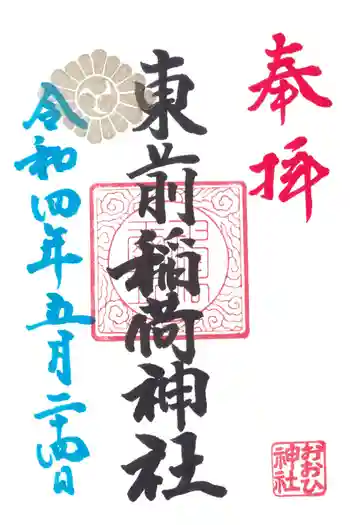 奉拝
東前稲荷神社
令和四年五月二十四日
おおひ
神社